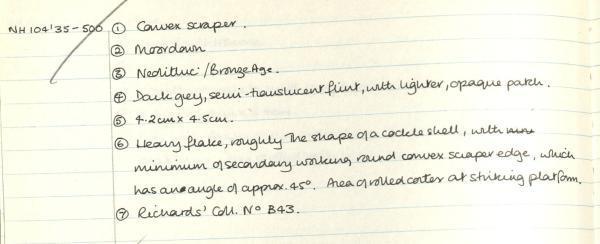 NH 104'35-500 ① Convex scraper.
② Moordown
③ Neolithic/Bronze Age.
④ Dark grey, semi-translucent flint, with lighter, opaque patch.
⑤ 4.2cm x 4.5cm.
⑥ Heavy flake, roughly the shape of a cockle shell, with
minimum of secondary working round convex scraper edge, which
has an angle of approx. 45°. Area of rolled cortex at striking platform.
⑦ Richards' Coll. Nº B43.